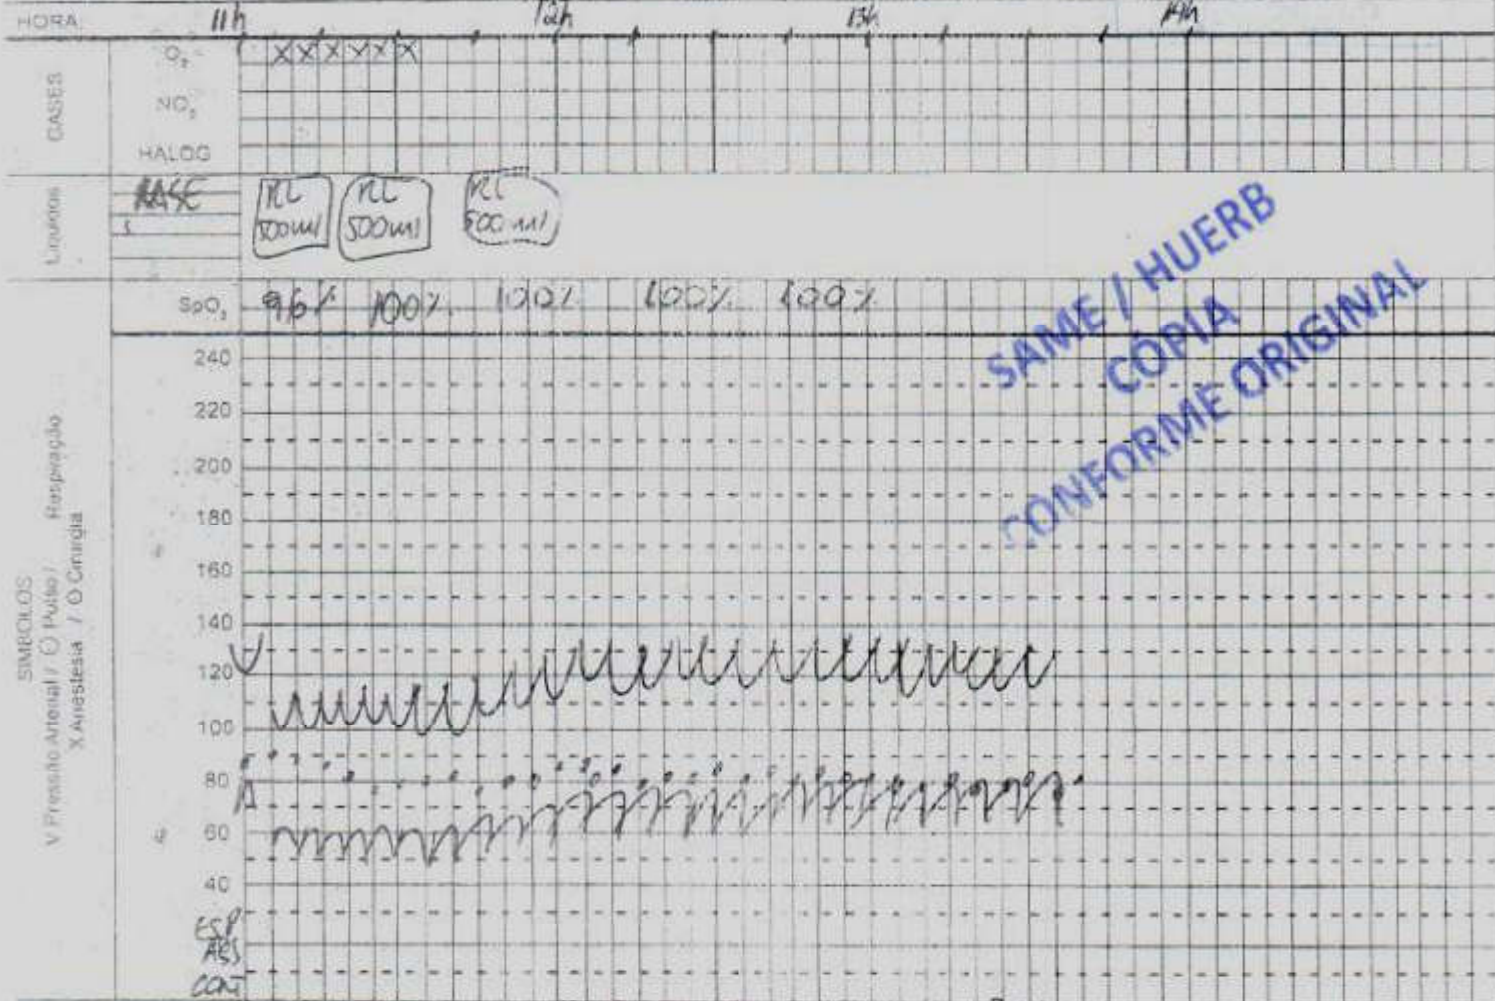 HORA 11h 12h 13h 14h
GASES
O₂ X X X X X X
NO₂
HALOG
Líquidos
BASE
RL 500ml RL 500ml RL 500ml
SpO₂ 96% 100% 100% 100% 100%
SAME / HUERB
CÓPIA
CONFORME ORIGINAL
SIMBOLOS
V Pressão Arterial / O Pulso / Respiração
X Anestesia / O Cirurgia
240
220
200
180
160
140
120
100
80
60
40
ESP
ASS
CONT